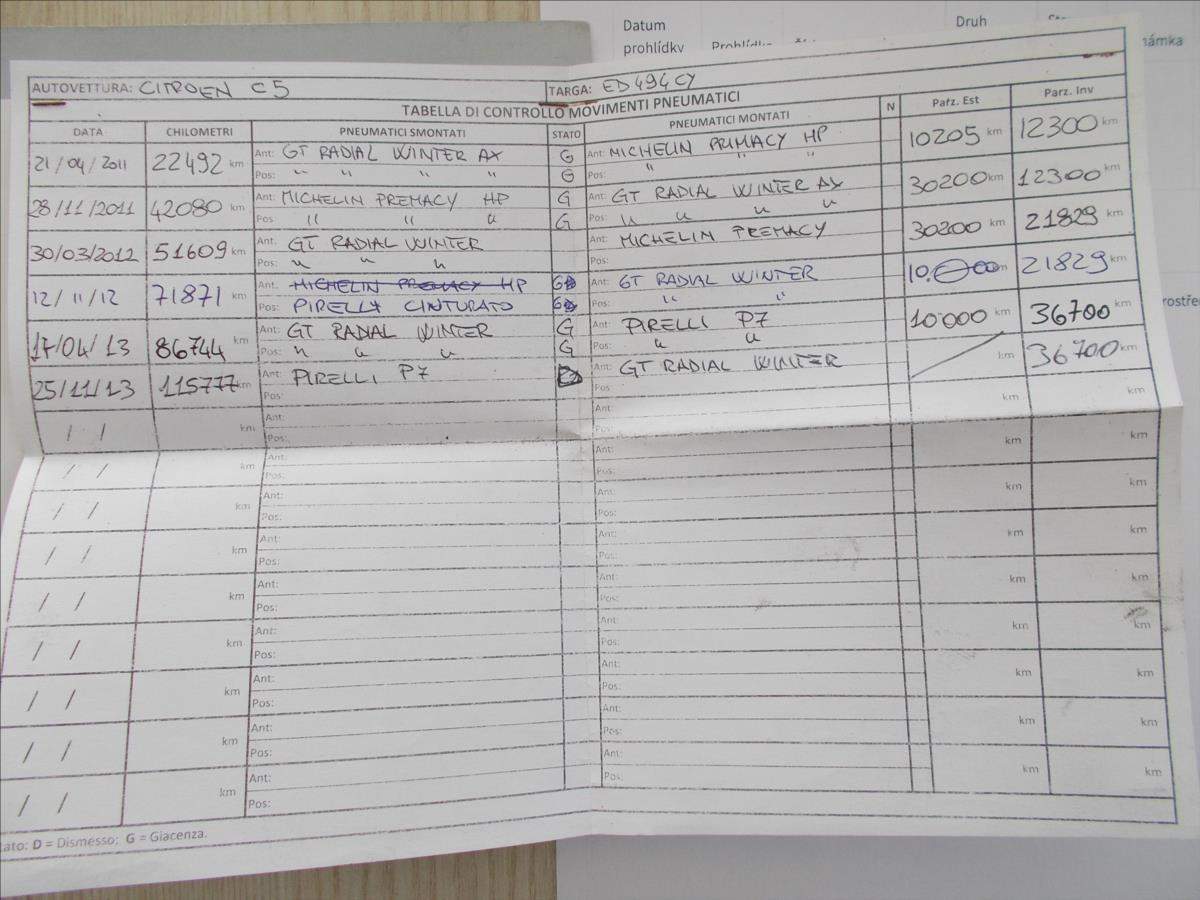 Datum Druh
prohlídky
AUTOVETTURA: CITROEN C5 TARGA: ED494CY
TABELLA DI CONTROLLO MOVIMENTI PNEUMATICI
DATA CHILOMETRI PNEUMATICI SMONTATI STATO PNEUMATICI MONTATI N Parz. Est Parz. Inv
21/04/2011 22492 km Ant: GT RADIAL WINTER AX G Ant: MICHELIN PRIMACY HP 10205 km 12300 km
Pos: " " " " G Pos: " " "
28/11/2011 42080 km Ant: MICHELIN PREMACY HP G Ant: GT RADIAL WINTER AX 30200 km 12300 km
Pos: " " " G Pos: " " " "
30/03/2012 51609 km Ant: GT RADIAL WINTER Ant: MICHELIN PREMACY 30200 km 21829 km
Pos: " " " Pos:
12/11/12 71871 km Ant: MICHELIN PREMACY HP G Ant: GT RADIAL WINTER 21829 km
Pos: PIRELLY CINTURATO G Pos: " "
17/04/13 86744 km Ant: GT RADIAL WINTER G Ant: PIRELLI P7 10'000 km 36700 km
Pos: " " " G Pos: " "
25/11/13 115777 km Ant: PIRELLI P7 Ant: GT RADIAL WINTER km 36700 km
Pos: Pos:
/ / km Ant: Ant: km km
Pos: Pos:
/ / km Ant: Ant: km km
Pos: Pos:
/ / km Ant: Ant: km km
Pos: Pos:
/ / km Ant: Ant: km km
Pos: Pos:
/ / km Ant: Ant: km km
Pos: Pos:
/ / km Ant: Ant: km km
Pos: Pos:
/ / km Ant: Ant: km km
Pos: Pos:
/ / km Ant: Ant: km km
Pos: Pos:
/ / km Ant: Ant: km km
Pos: Pos:
D = Dismesso; G = Giacenza.